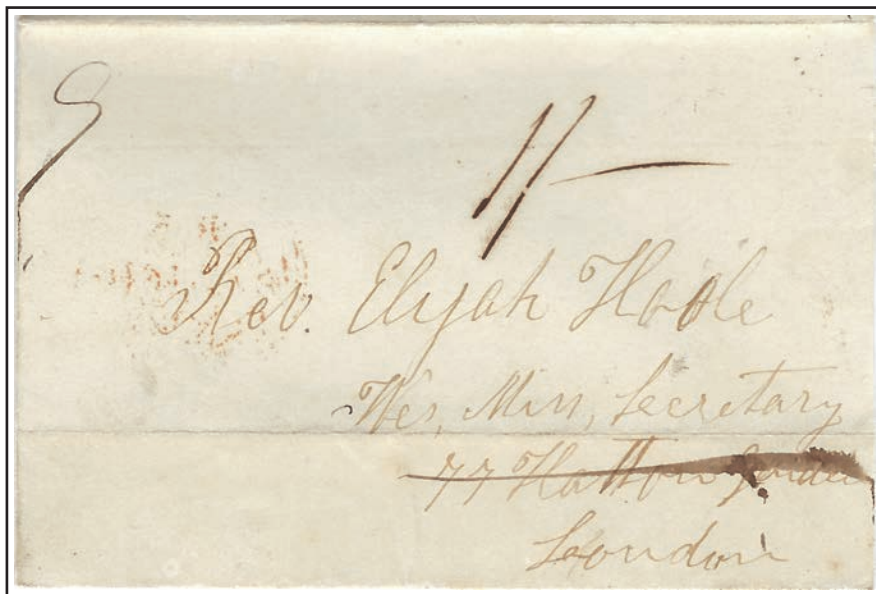 1/-
Rev. Elijah Hoole
Wes, Miss, Secretary
77 Hatton Garden
London